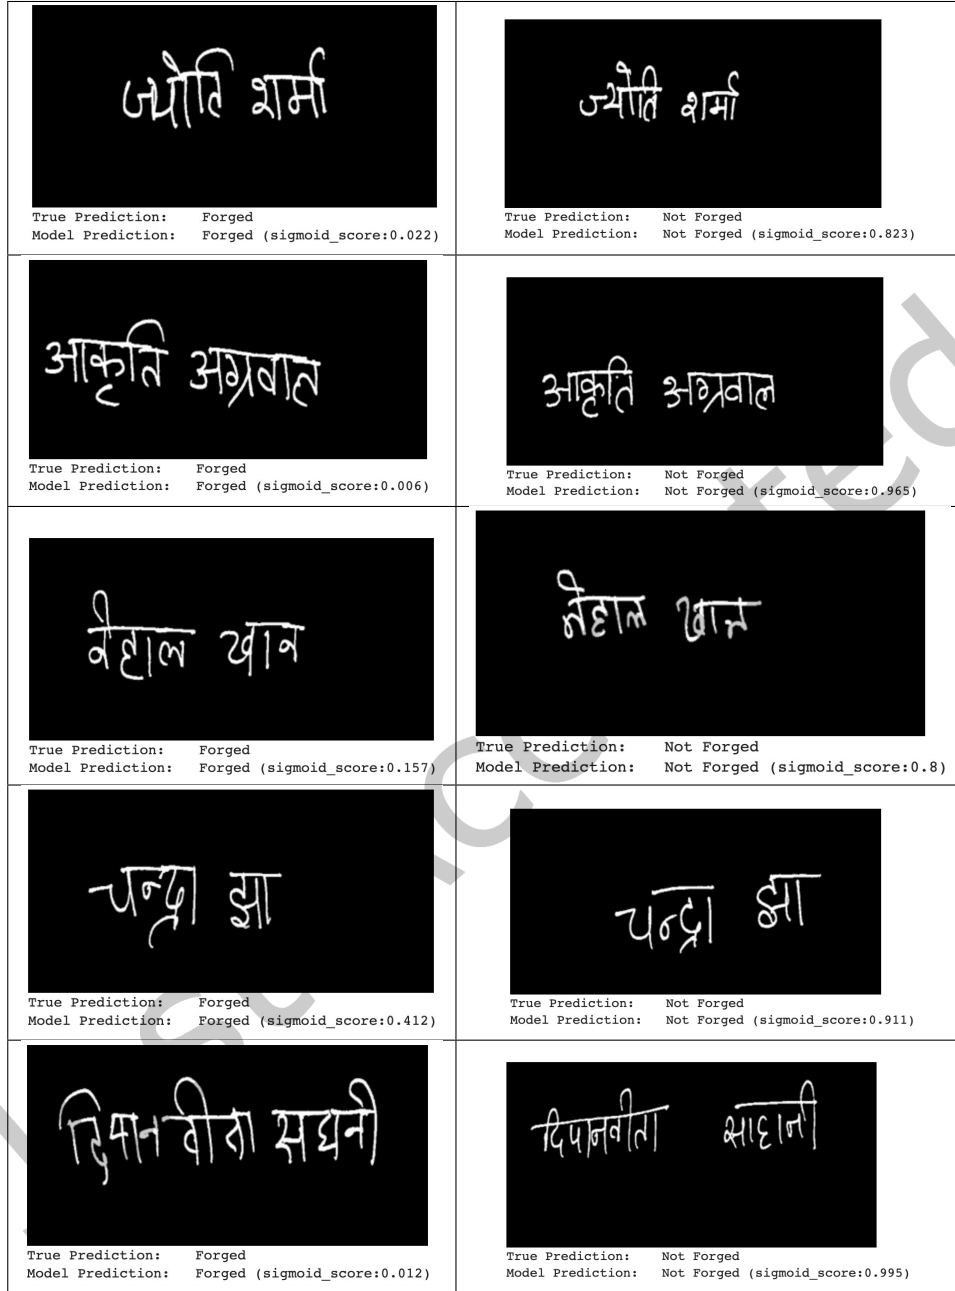 ज्योति शर्मा
True Prediction: Forged
Model Prediction: Forged (sigmoid_score:0.022)
ज्योति शर्मा
True Prediction: Not Forged
Model Prediction: Not Forged (sigmoid_score:0.823)
आकृति अग्रवाल
True Prediction: Forged
Model Prediction: Forged (sigmoid_score:0.006)
आकृति अग्रवाल
True Prediction: Not Forged
Model Prediction: Not Forged (sigmoid_score:0.965)
नेहाल खान
True Prediction: Forged
Model Prediction: Forged (sigmoid_score:0.157)
नेहाल खान
True Prediction: Not Forged
Model Prediction: Not Forged (sigmoid_score:0.8)
चन्द्रा झा
True Prediction: Forged
Model Prediction: Forged (sigmoid_score:0.412)
चन्द्रा झा
True Prediction: Not Forged
Model Prediction: Not Forged (sigmoid_score:0.911)
दिपानवीता
True Prediction: Forged
Model Prediction: Forged (sigmoid_score:0.012)
दिपानवीता साहानी
True Prediction: Not Forged
Model Prediction: Not Forged (sigmoid_score:0.995)